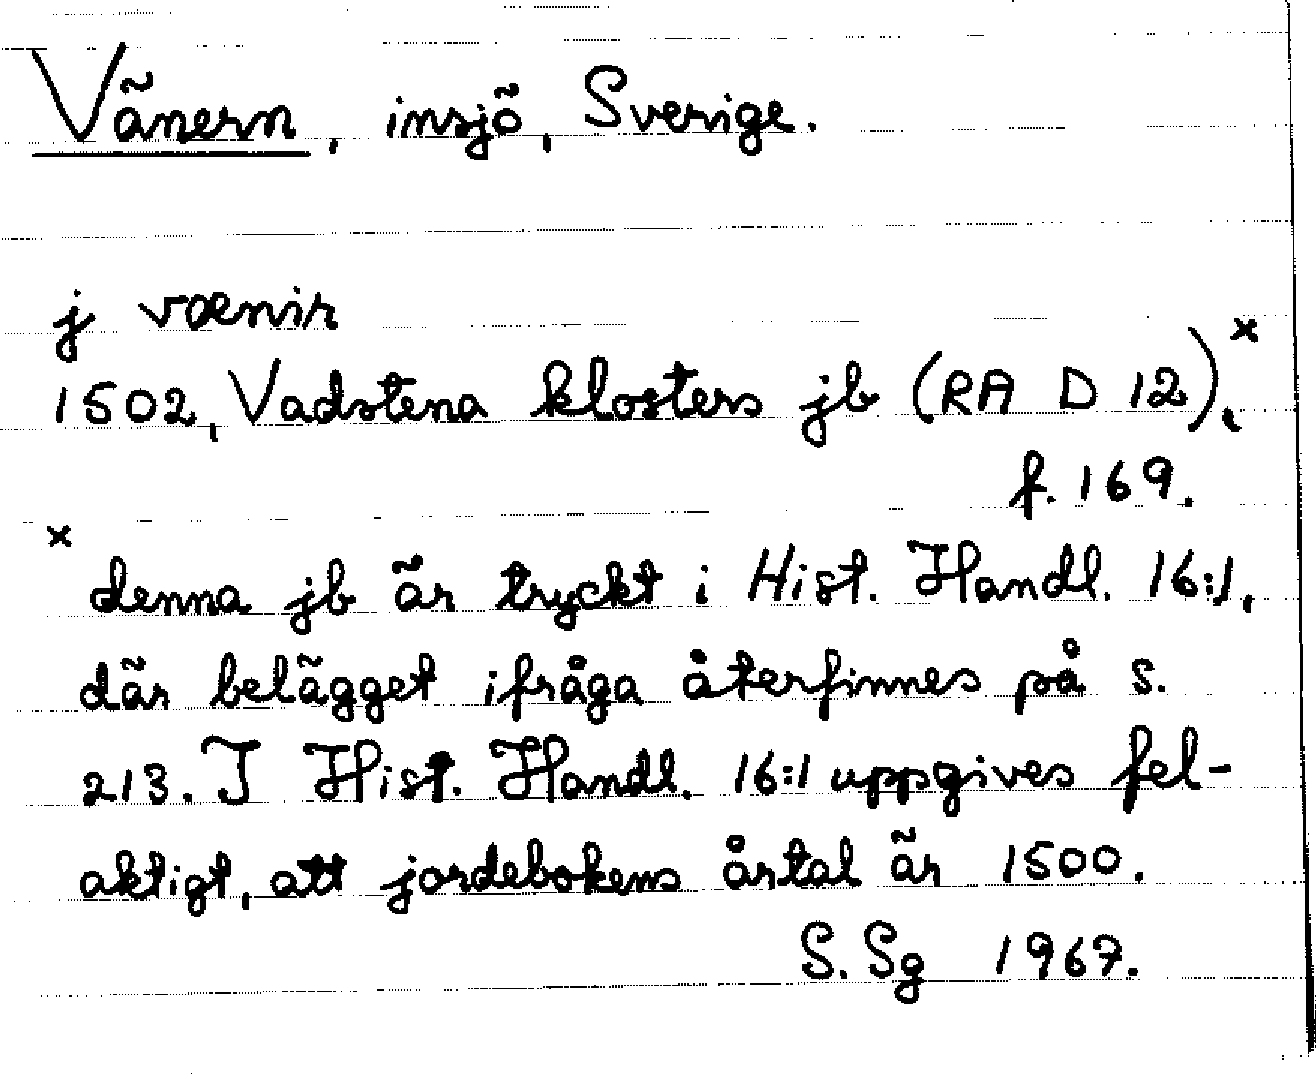 Vänern, insjö, Sverige.
j vænir
1502, Vadstena klosters jb (RA D 12),ˣ
f. 169.
ˣ denna jb är tryckt i Hist. Handl. 16:1,
där belägget ifråga återfinnes på s.
213. I Hist. Handl. 16:1 uppgives fel-
aktigt, att jordebokens årtal är 1500.
S. Sg 1967.